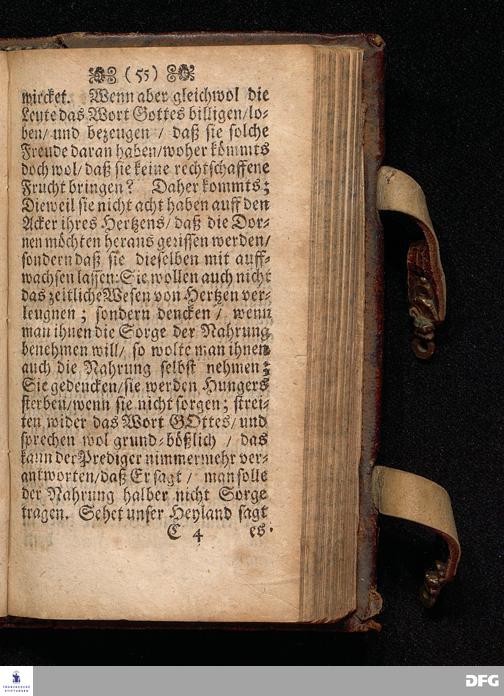 (55)
wircket. Wenn aber gleichwol die
Leute das Wort Gottes billigen/lo-
ben/ und bezeugen / daß sie solche
Freude daran haben/woher kömmts
doch wol/ daß sie keine rechtschaffene
Frucht bringen? Daher kommts;
Dieweil sie nicht acht haben auff den
Acker ihres Hertzens/ daß die Dor-
nen möchten heraus gerissen werden/
sondern daß sie dieselben mit auff-
wachsen lassen: Sie wollen auch nicht
das zeitliche Wesen von Hertzen ver-
leugnen ; sondern dencken / wenn
man ihnen die Sorge der Nahrung
benehmen will/ so wolte man ihnen
auch die Nahrung selbst nehmen;
Sie gedencken/sie werden Hungers
sterben/wenn sie nicht sorgen; strei-
ten wider das Wort GOttes/ und
sprechen wol grund-bößlich / das
kann der Prediger nimmermehr ver-
antworten/daß Er sagt / man solle
der Nahrung halber nicht Sorge
tragen. Sehet unser Heyland sagt
C 4 es
FRANCKESCHE
STIFTUNGEN
DFG